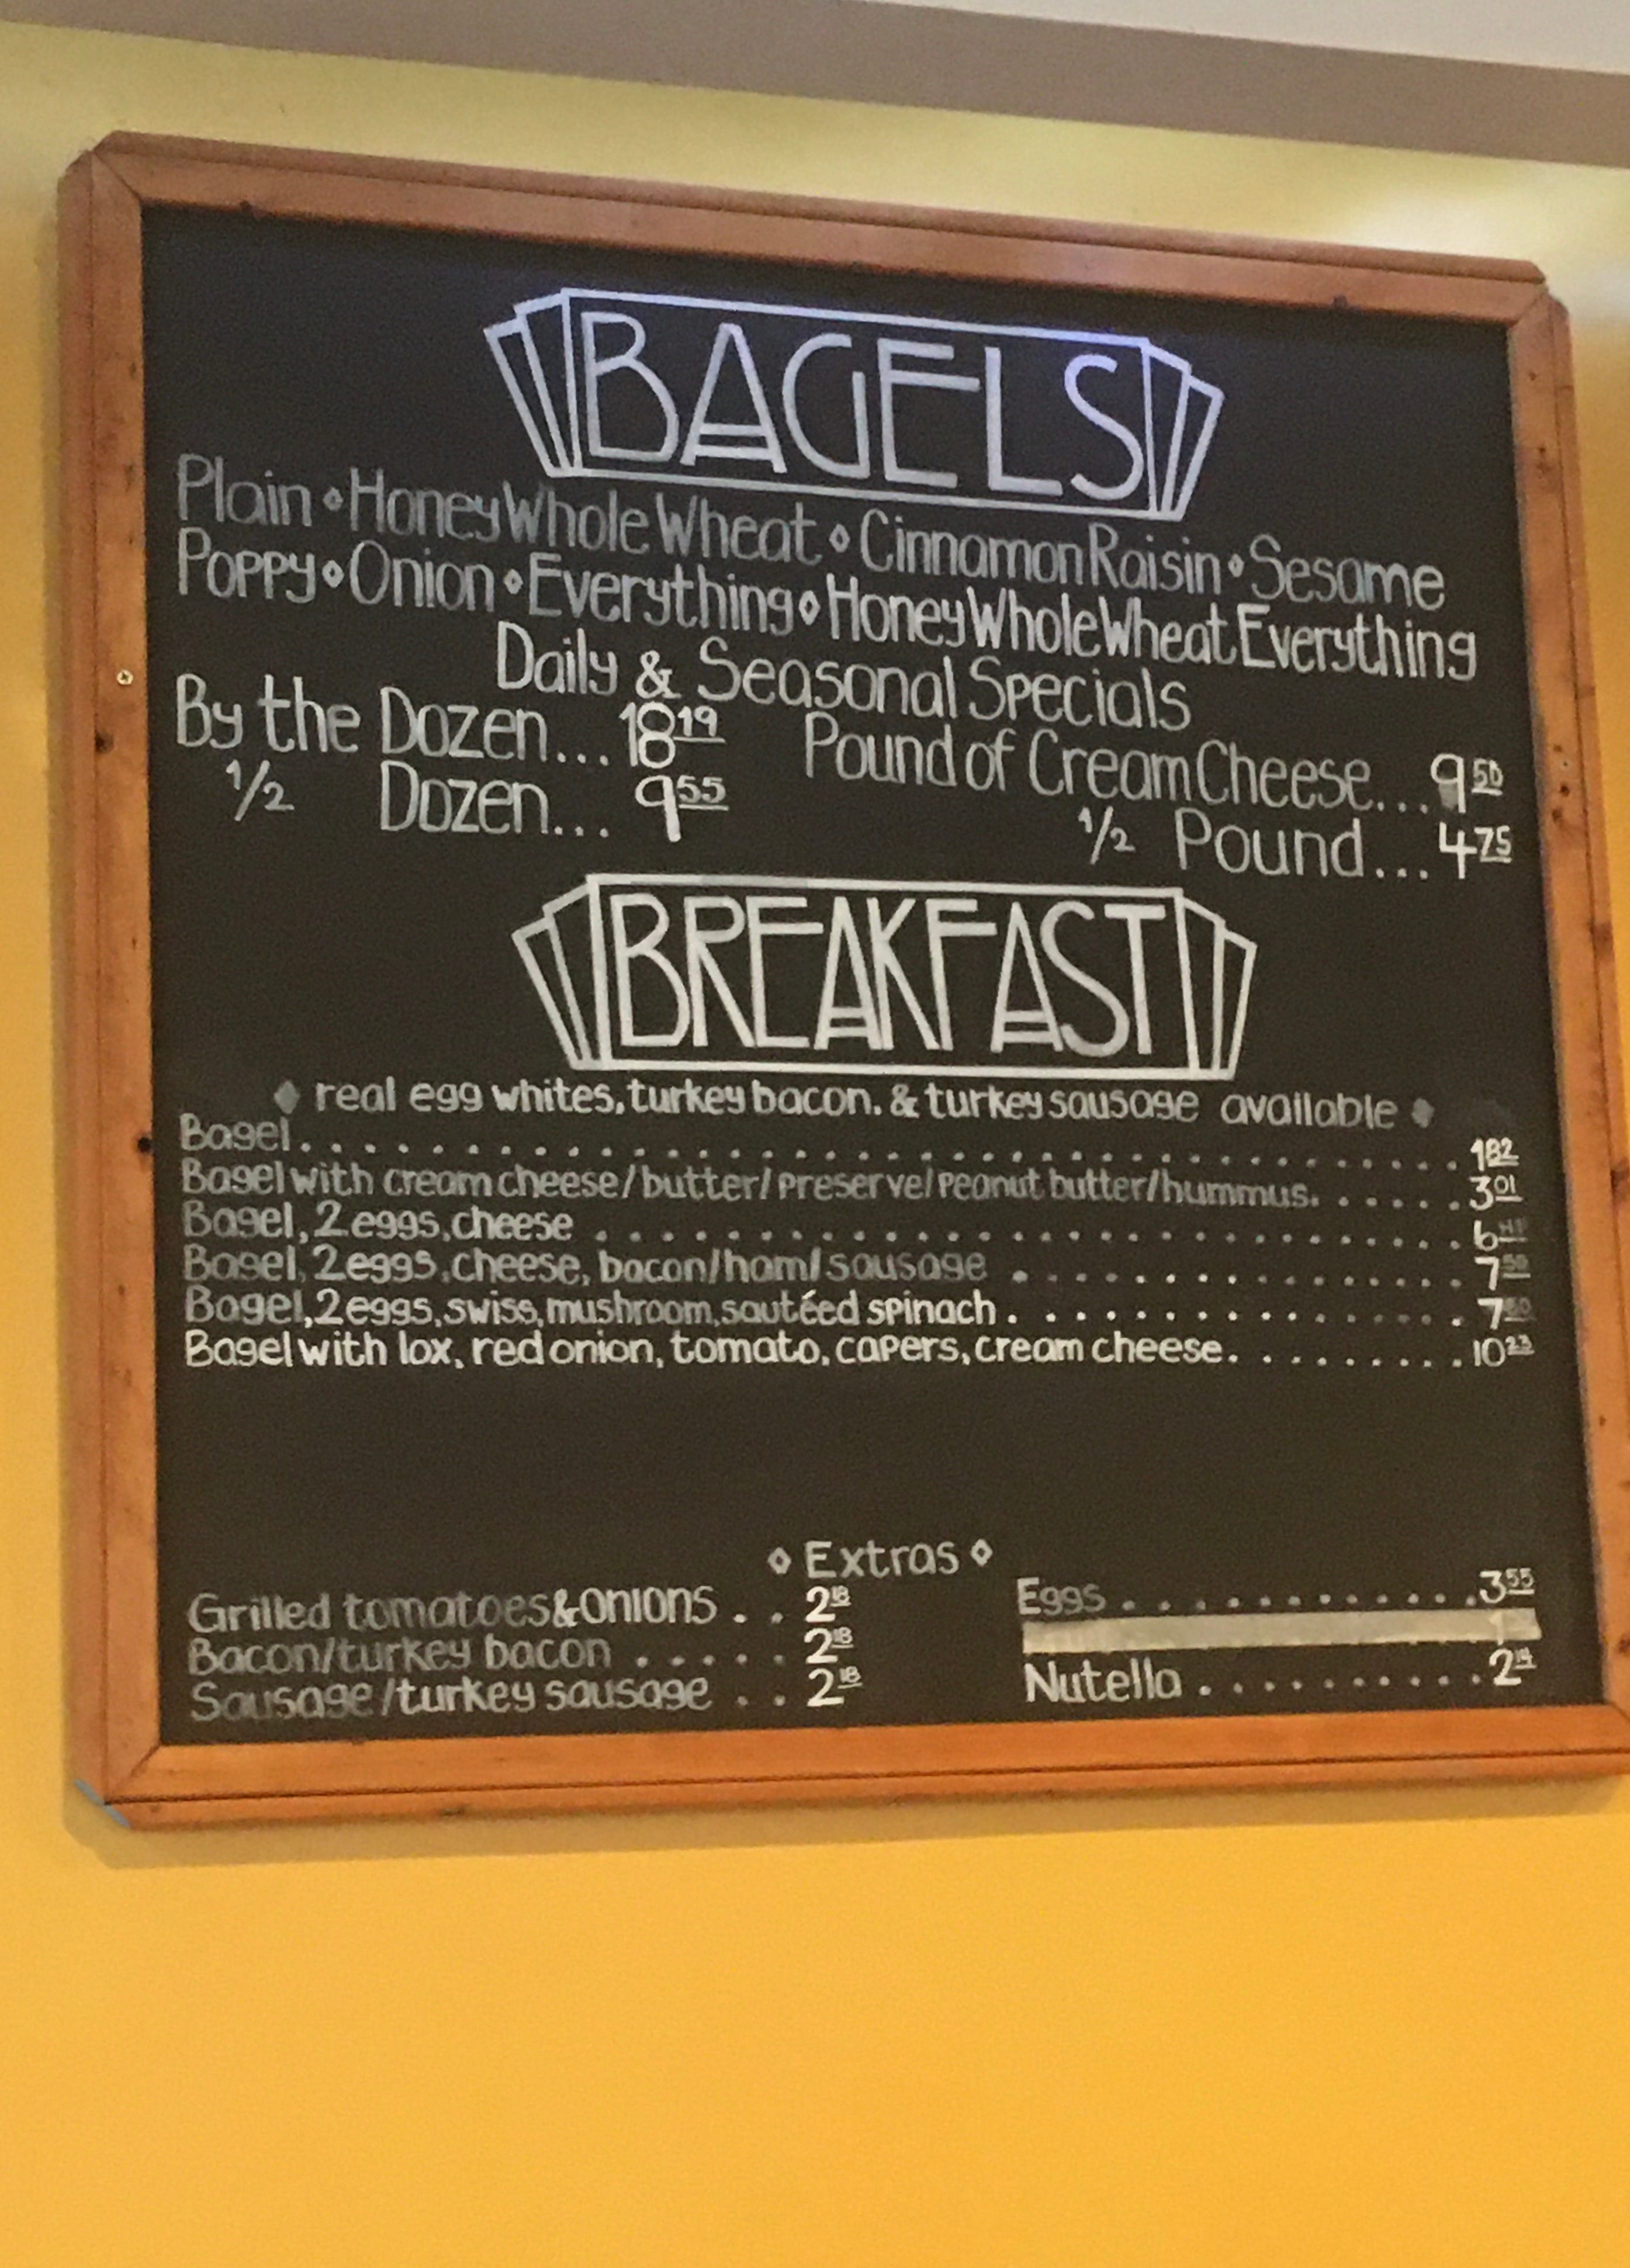 BAGELS
Plain Honey Whole Wheat Cinnamon Raisin Sesame
Poppy Onion Everything Honey Whole Wheat Everything
Daily & Seasonal Specials
By the Dozen... 18 19 Pound of Cream Cheese... 9 50
1/2 Dozen... 9 55 1/2 Pound... 4 75
BREAKFAST
real egg whites, turkey bacon. & turkey sausage available
Bagel. . . . . . . . . . . . . . . . . . . . 1 82
Bagel with cream cheese/butter/preserve/peanut butter/hummus. . . . . . 3 01
Bagel, 2 eggs, cheese . . . . . . . . . . . . . . . . . . . . 6
Bagel, 2 eggs, cheese, bacon/ham/sausage . . . . . . . . . . . . 7
Bagel, 2 eggs, swiss, mushroom, sautéed spinach . . . . . . . . . . . . 7
Bagel with lox, red onion, tomato, capers, cream cheese. . . . . . . . . 10 23
Extras
Grilled tomatoes & onions . . 2 18
Bacon/turkey bacon . . . . . 2 18
Sausage/turkey sausage . . 2 18
Eggs . . . . . . . . . . . . . 3 55
Nutella . . . . . . . . . . 2 14